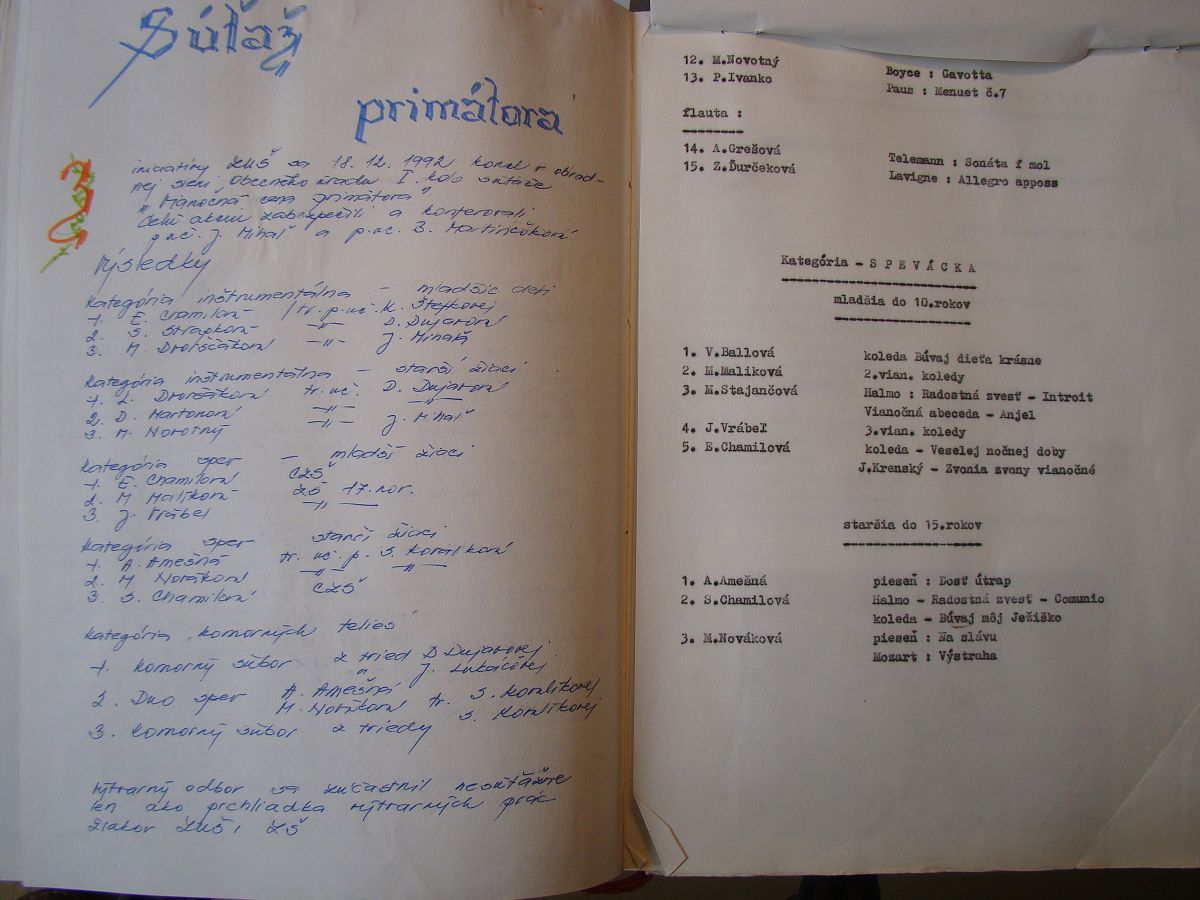 Súťaž
primátora
Z
iniciatívy ZUŠ sa 18.12. 1992 konal v obrad-
nej sieni Obecného úradu I. kolo súťaže
„Vianočná cena primátora"
Celú akciu zabezpečili a konferovali
p.uč. J. Mihaľ a p.uč. B. Martinčoková
Výsledky
Kategória inštrumentálna - mladšie deti
1. E. Chamilová /tr. p.uč. K. Štefkovej
2. S. Straková -"- D. Dujavová
3. M. Dvorščáková -"- J. Mihaľa
Kategória inštrumentálna - starší žiaci
1. L. Dvorščáková tr. uč. D. Dujavová
2. D. Martonová -"- -"-
3. M. Novotný -"- J. Mihaľ
Kategória spev - mladší žiaci
1. E. Chamilová CZŠ
2. M. Maliková ZŠ 17. nov.
3. J. Vrábel -"-
Kategória spev starší žiaci
1. A. Amešná tr. uč. p. S. Koralková
2. M. Nováková -"- -"-
3. S. Chamilová CZŠ
Kategória komorných telies
1. Komorný súbor z tried D. Dujavovej
" J. Lukáčovej
2. Duo spev A. Amešná
M. Nováková tr. S. Koralikovej
3. Komorný súbor z triedy S. Koralikovej
Výtvarný odbor sa zúčastnil nesúťažne
len ako prehliadka výtvarných prác
žiakov ZUŠ i ZŠ
12. M.Novotný Boyce : Gavotta
13. P.Ivanko Paus : Menuet č.7
flauta :
14. A.Grešová Telemann : Sonáta f mol
15. Z.Ďurčeková Lavigne : Allegro apposs
Kategória - S P E V Á C K A
mladšia do 10.rokov
1. V.Ballová koleda Búvaj dieťa krásne
2. M.Maliková 2.vian. koledy
3. M.Stajančová Halmo : Radostná zvesť - Introit
Vianočná abeceda - Anjel
4. J.Vrábeľ 3.vian. koledy
5. E.Chamilová koleda - Veselej nočnej doby
J.Krenský - Zvonia zvony vianočné
staršia do 15.rokov
1. A.Amešná pieseň : Dosť útrap
2. S.Chamilová Halmo - Radostná zvesť - Comunio
koleda - Búvaj môj Ježiško
3. M.Nováková pieseň : Na slávu
Mozart : Výstraha